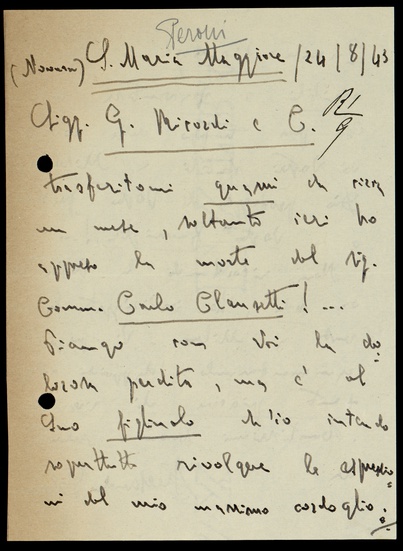 Perosi
(Novara) S. Maria Maggiore / 24 / 8 / 43
Sigg. G. Ricordi e C.
R1/9
trasferitomi quassù da circa
un mese, soltanto ieri ho
appreso la morte del sig.
Comm. Carlo Clausetti! ...
Piango con Voi la do=
lorosa perdita, ma è al
Suo figliuolo ch'io intendo
soprattutto rivolgere le espressio=
ni del mio vivissimo cordoglio.